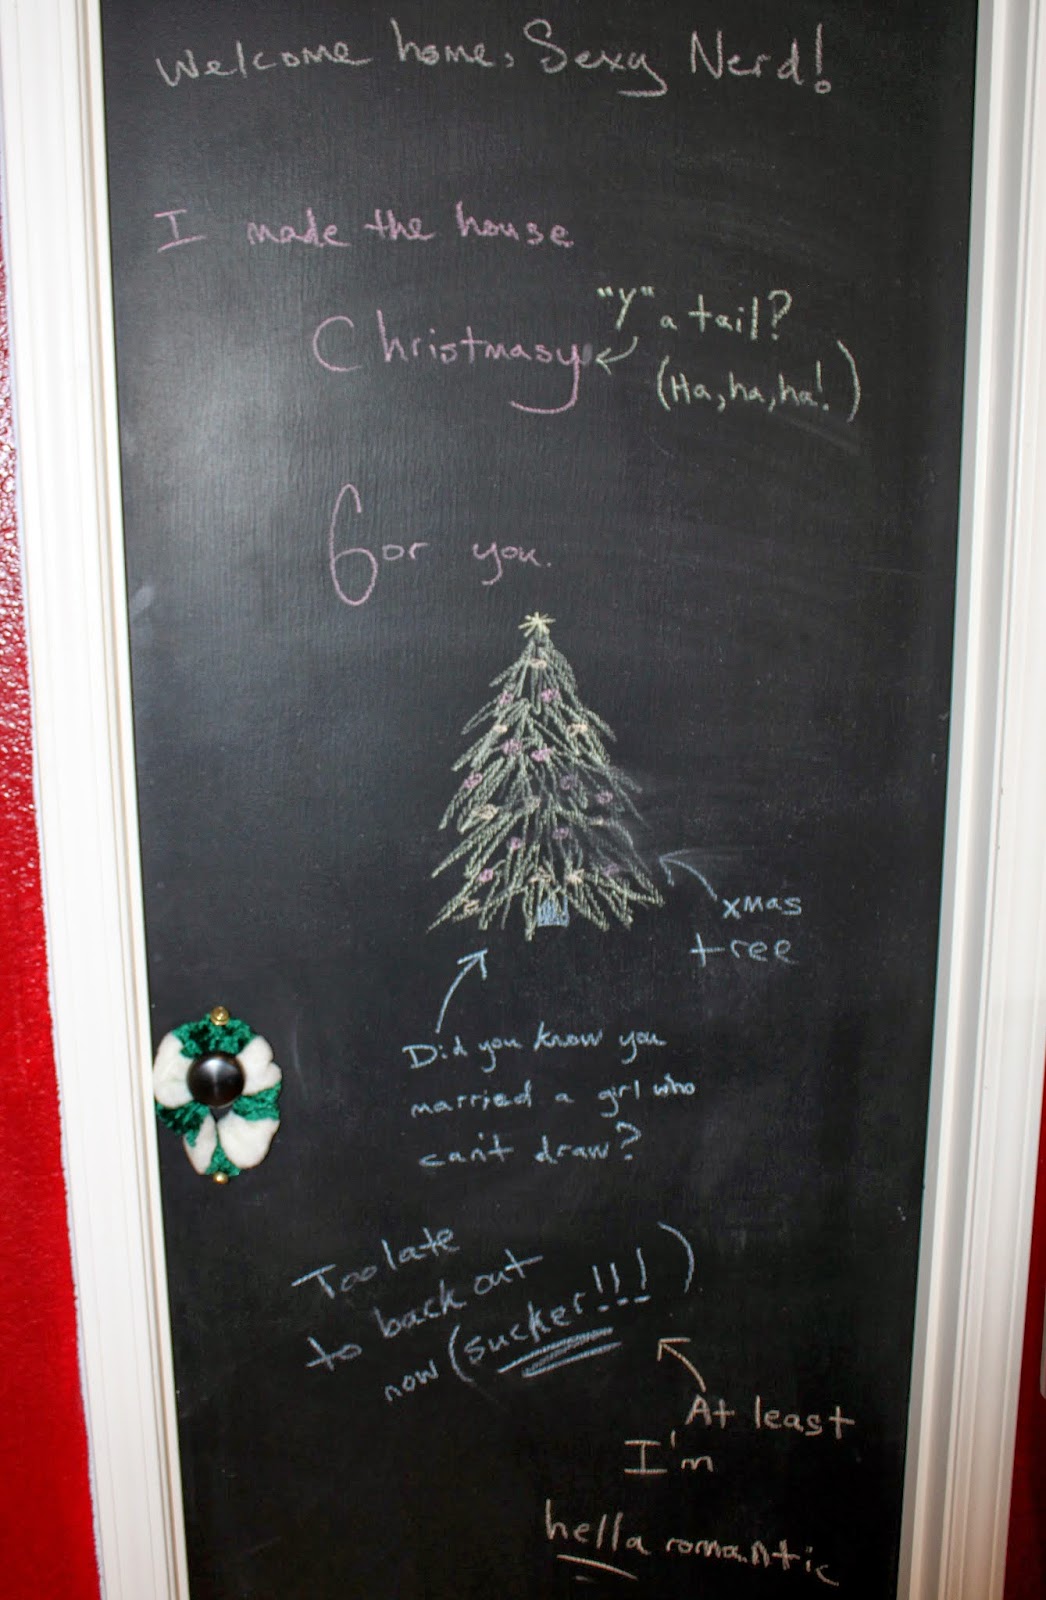 Welcome home, Sexy Nerd!
I made the house
Christmasy
"Y" a tail?
(Ha, ha, ha!)
for you.
xmas
tree
Did you know you
married a girl who
can't draw?
Too late
to back out
now (sucker!!!)
At least
I'm
hella romantic